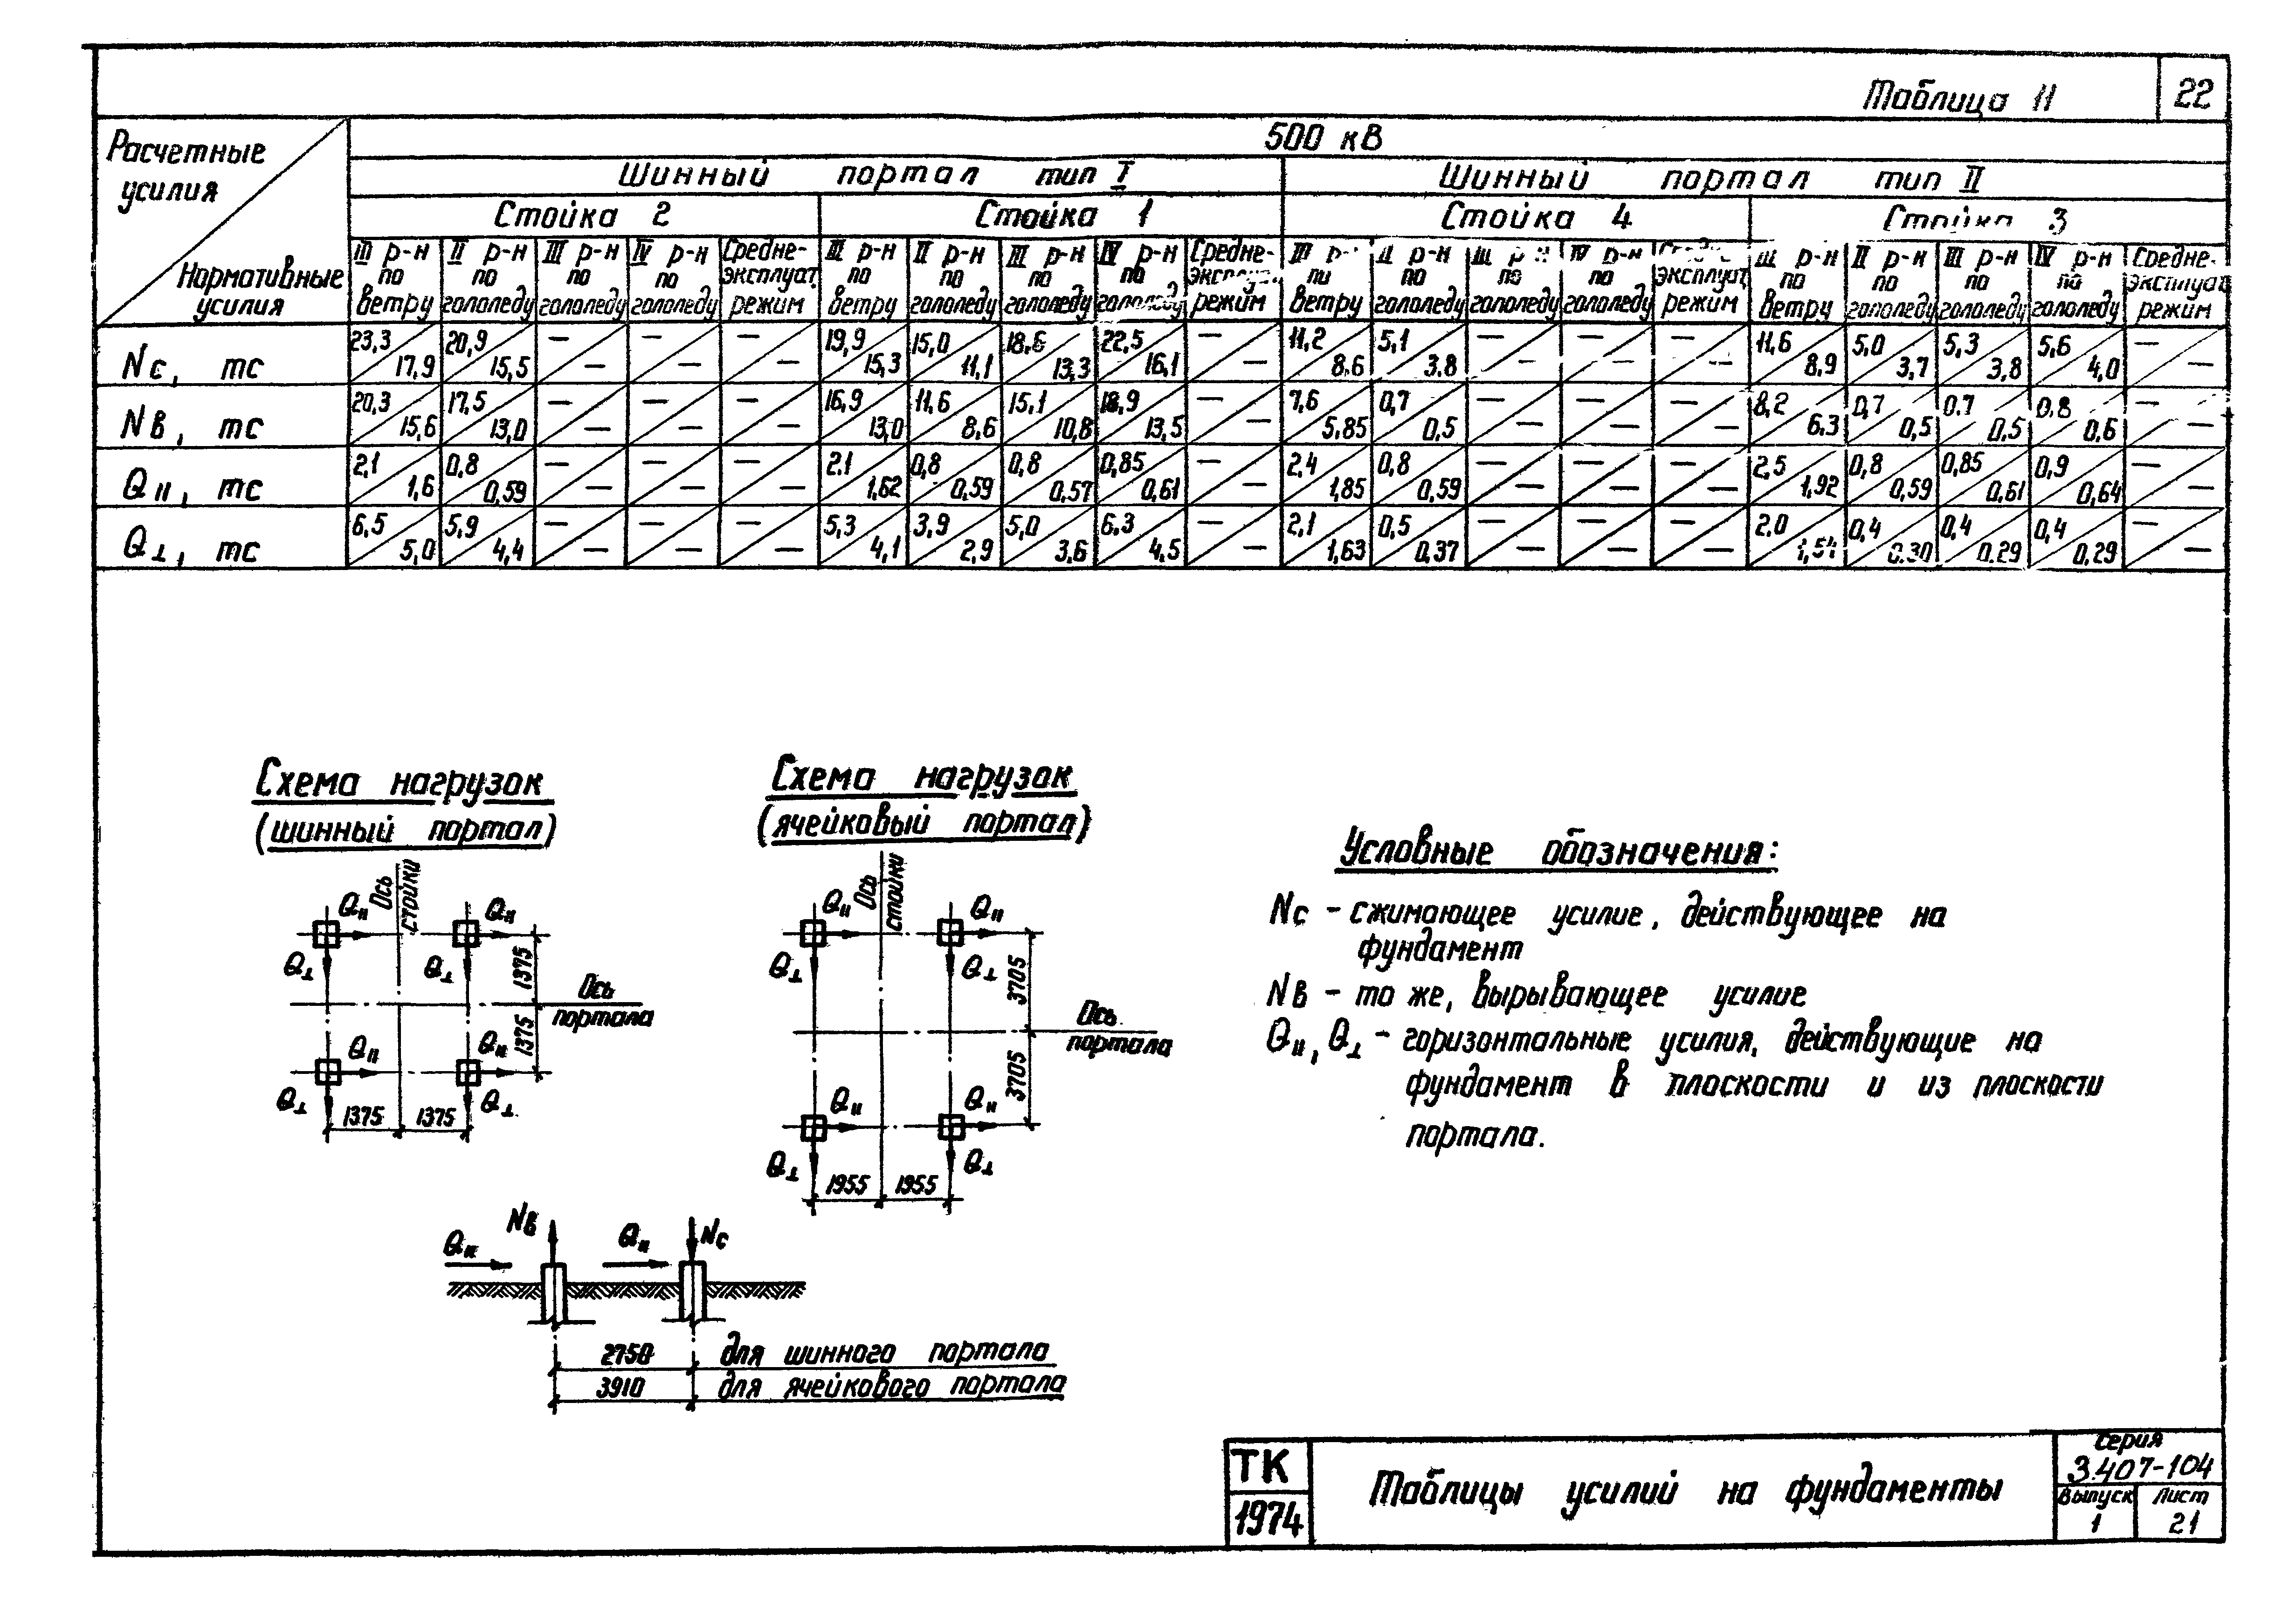 Таблица 11
22
Расчетные
усилия
Нормативные
усилия
500 кВ
Шинный портал тип I
Шинный портал тип II
Стойка 2
Стойка 1
Стойка 4
Стойка 3
III р-н по ветру
II р-н по гололеду
III р-н по гололеду
IV р-н по гололеду
Средне-эксплуат. режим
III р-н по ветру
II р-н по гололеду
III р-н по гололеду
IV р-н по гололеду
Средне-эксплуат. режим
III р-н по ветру
II р-н по гололеду
III р-н по гололеду
IV р-н по гололеду
эксплуат. режим
III р-н по ветру
II р-н по гололеду
III р-н по гололеду
IV р-н по гололеду
Средне-эксплуат. режим
Nс, тс 23,3 17,9 20,9 15,5 – – – – – – 19,9 15,3 15,0 11,1 18,6 13,3 22,5 16,1 – – 11,2 8.6 5,1 3.8 – – – – – – 11,6 8,9 5,0 3,7 5,3 3,8 5,6 4,0 – –
Nв, тс 20,3 15,6 17,5 13,0 – – – – – – 16,9 13,0 11,6 8.6 15,1 10,8 18,9 13,5 – – 7,6 5.85 0,7 0.5 – – – – – – 8,2 6.3 0,7 0,5 0.7 0.5 0.8 0.6 – –
Q||, тс 2,1 1,6 0,8 0,59 – – – – – – 2.1 1,62 0,8 0,59 0,8 0,57 0,85 0,61 – – 2,4 1,85 0,8 0,59 – – – – – – 2,5 1,92 0,8 0,59 0,85 0,61 0,9 0,64 – –
Q⊥, тс 6,5 5,0 5,9 4,4 – – – – – – 5,3 4,1 3,9 2,9 5,0 3,6 6,3 4,5 – – 2,1 1,63 0,5 0,37 – – – – – – 2.0 1,54 0,4 0.30 0,4 0.29 0,4 0.29 – –
Схема нагрузок
(шинный портал)
Ось
стойки
Q||
Q||
Q⊥
Q⊥
1375
Ось
портала
1375
Q||
Q||
Q⊥
Q⊥
1375
1375
Схема нагрузок
(ячейковый портал)
Ось
стойки
Q||
Q||
Q⊥
Q⊥
3705
Ось
портала
3705
Q||
Q||
Q⊥
Q⊥
1955
1955
Nв
Q||
Q||
Nс
2750 для шинного портала
3910 для ячейкового портала
Условные обозначения:
Nс – сжимающее усилие, действующее на
фундамент
Nв – то же, вырывающее усилие
Q||, Q⊥ – горизонтальные усилия, действующие на
фундамент в плоскости и из плоскости
портала.
ТК
1974
Таблицы усилий на фундаменты
Серия
3.407-104
Выпуск
1
Лист
21